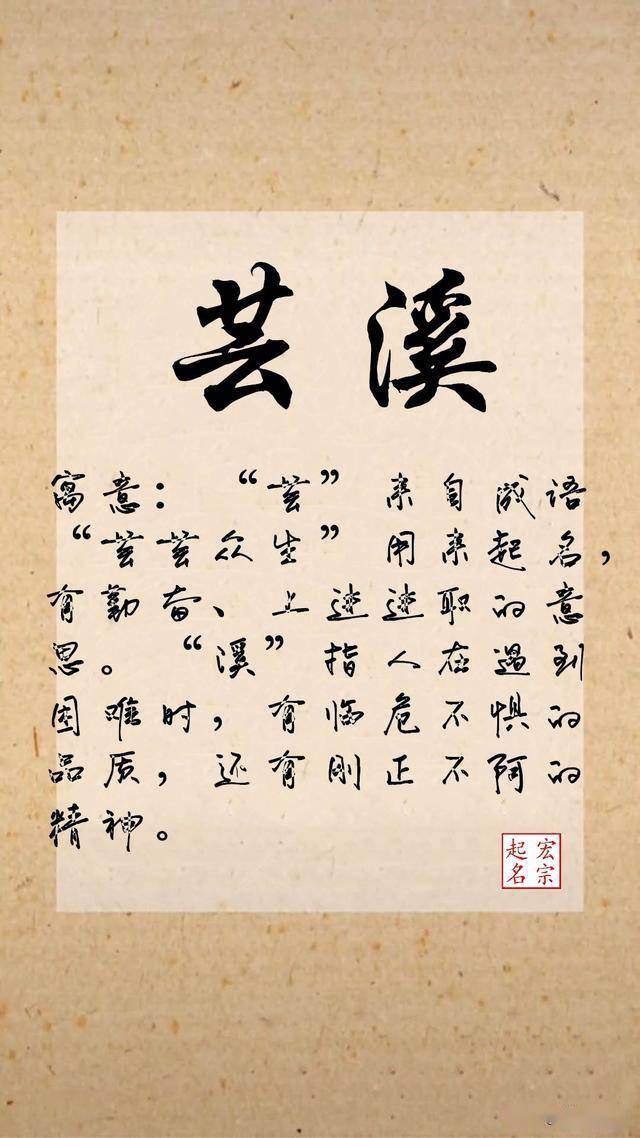 芸溪
寓意：“芸”来自成语
“芸芸众生”用来起名，
有勤奋、上进速职的意
思。“溪”指人在遇到
困难时，有临危不惧的
品质，还有刚正不阿的
精神。
宏宗
起名